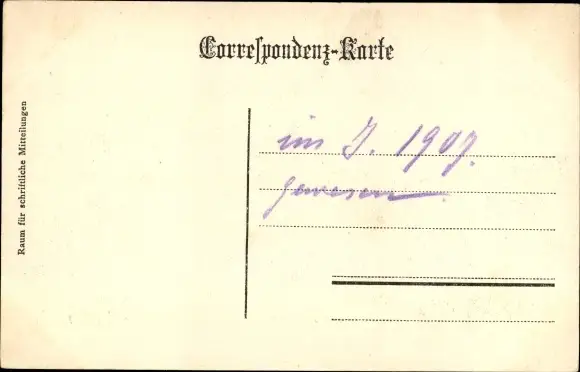 Correspondenz-Karte
Raum für schriftliche Mitteilungen
im J. 1907.
gewesen